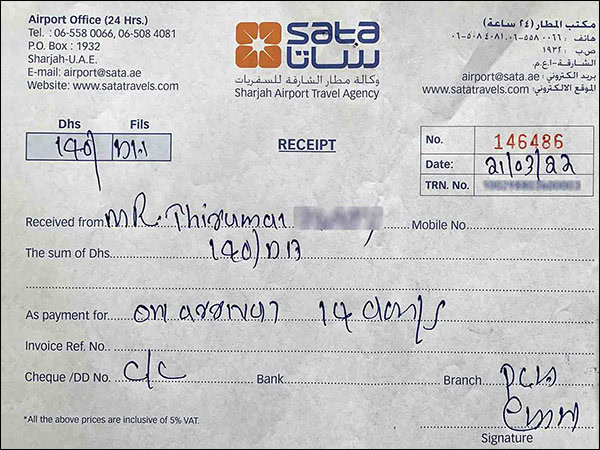 Airport Office (24 Hrs.)
Tel. : 06-558 0066, 06-508 4081
P.O. Box : 1932
Sharjah-U.A.E.
E-mail: airport@sata.ae
Website: www.satatravels.com
sata
ساتا
وكالة مطار الشارقة للسفريات
Sharjah Airport Travel Agency
مكتب المطار (٢٤ ساعة)
هاتف : ٠٠٦٦ ٥٥٨-٠٦، ٤٠٨١ ٥٠٨-٠٦
ص.ب : ١٩٣٢
الشارقة-ا.ع.م.
بريد الكتروني: airport@sata.ae
الموقع الالكتروني: www.satatravels.com
Dhs Fils
140/
RECEIPT
No. 146486
Date: 21/03/22
TRN. No.
Received from MR. Thirumar Mobile No.
The sum of Dhs. 140/
As payment for on arrival 14 days
Invoice Ref. No.
Cheque /DD No. c/c Bank Branch
*All the above prices are inclusive of 5% VAT.
Signature